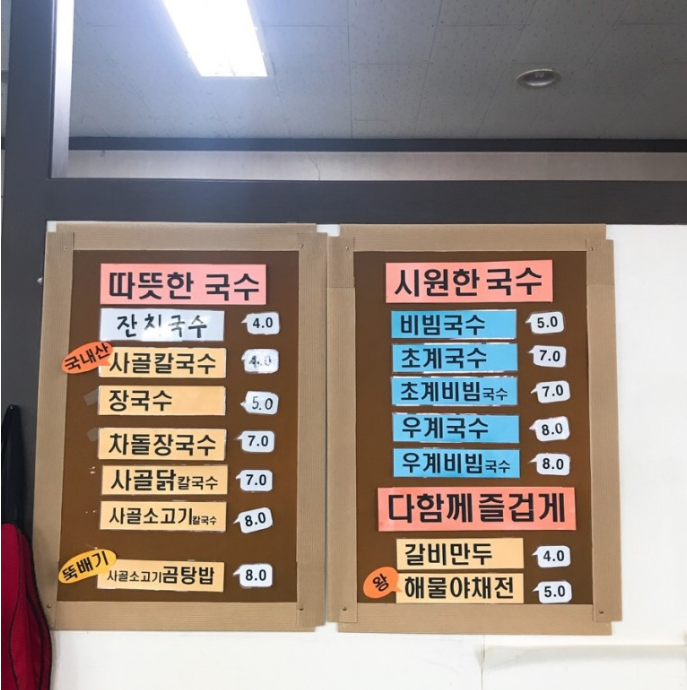 따뜻한 국수
잔치국수 4.0
국내산 사골칼국수 4.0
장국수 5.0
차돌장국수 7.0
사골닭칼국수 7.0
사골소고기칼국수 8.0
뚝배기 사골소고기곰탕밥 8.0
시원한 국수
비빔국수 5.0
초계국수 7.0
초계비빔국수 7.0
우계국수 8.0
우계비빔국수 8.0
다함께 즐겁게
갈비만두 4.0
왕 해물야채전 5.0